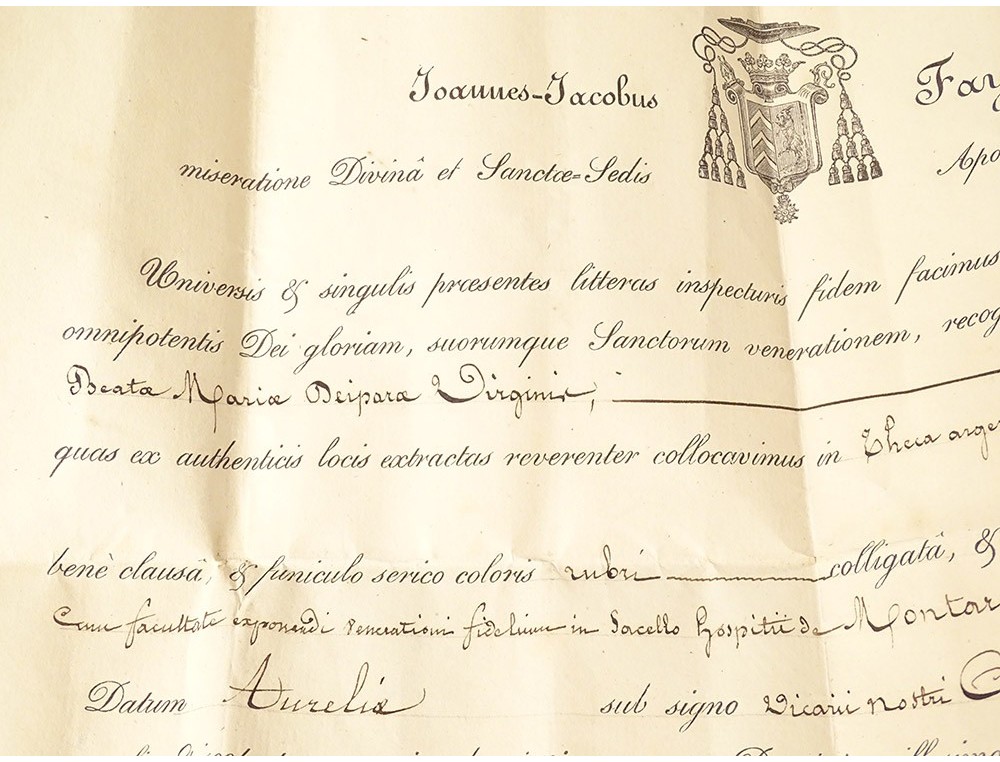 Joannes-Jacobus Fay
miseratione Divinâ et Sanctæ=Sedis Apo
Universis & singulis præsentes litteras inspecturis fidem facimus
omnipotentis Dei gloriam, suorumque Sanctorum venerationem, recog
Beatæ Mariæ Deiparæ Virginis,
quas ex authenticis locis extractas reverenter collocavimus in Theca arge
benè clausâ, & funiculo serico coloris rubri colligatâ, &
Cum facultate exponendi venerationi fidelium in Sacello hospitii de Montar
Datum Aureliæ sub signo Vicarii nostri